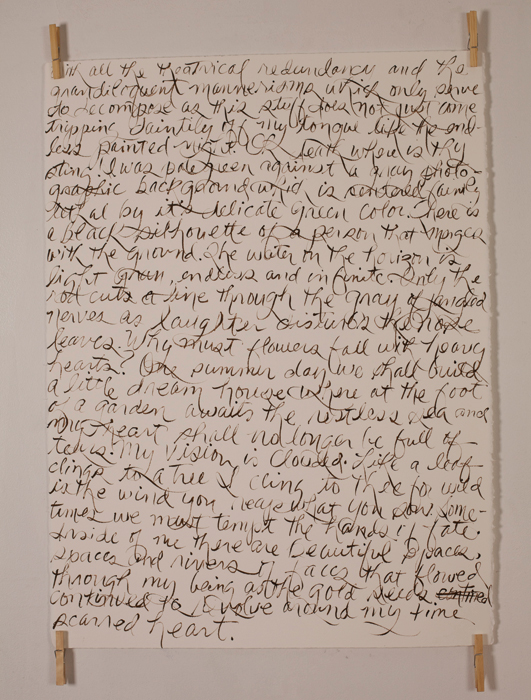 with all the theatrical redundancy and the
grandiloquent mannerisms which only serve
to decompose as this stuff does not just come
tripping daintily off my tongue like the end-
less painted night. Oh death where is thy
sting! I was green against a gray photo-
graphic background which is
by it's delicate green color. There is
a black silhouette of a person that merges
with the ground. The water on the horizon is
light green, endless and infinite. Only the
cuts a line through the gray of jangled
nerves as laughter disturbs the rose
leaves. Why must flowers fall with heavy
hearts? One summer day we shall build
a little dream house where at the foot
of a garden awaits the restless sea and
my heart shall no longer be full of
tears. My vision is clouded. Like a leaf
clings to a tree I cling to thee for wild
is the wind you reap what you sow. Some-
times we must tempt the hands of fate.
Inside of me there are beautiful spaces,
spaces and rivers of faces that flowed
through my being as the gold seeds
continued to revolve around my time
scarred heart.